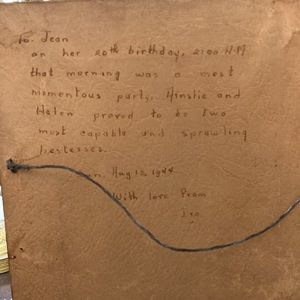 To Jean
on her 20th birthday, 2:00 A.M
that morning was a most
momentous party. Ainslie and
Helen proved to be two
most capable and sprawling
hostesses.
Aug 12, 1944
With love From